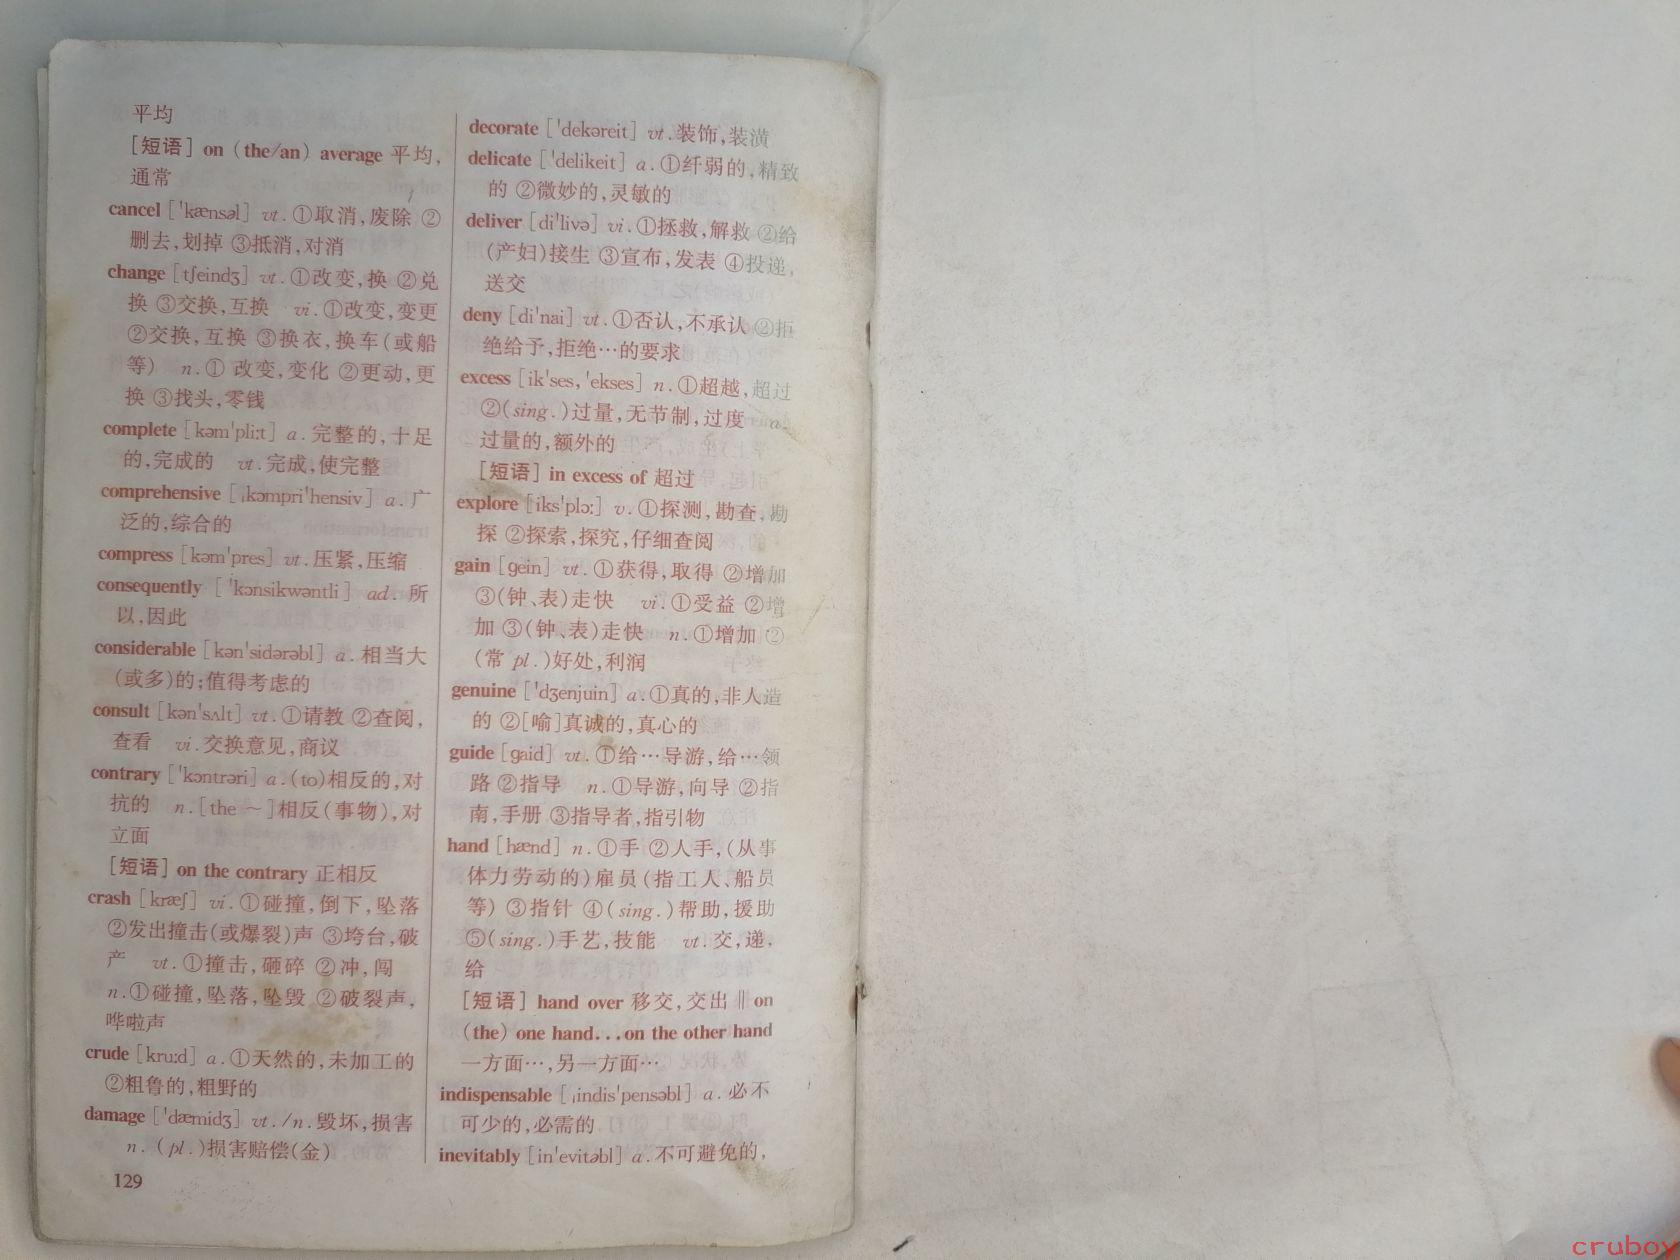 平均
[短语] on (the/an) average 平均,
通常
cancel ['kænsəl] vt.①取消,废除 ②
删去,划掉 ③抵消,对消
change [tʃeindʒ] vt.①改变,换 ②兑
换 ③交换,互换 vi.①改变,变更
②交换,互换 ③换衣,换车(或船
等) n.① 改变,变化 ②更动,更
换 ③找头,零钱
complete [kəm'pli:t] a.完整的,十足
的,完成的 vt.完成,使完整
comprehensive [ˌkɔmpri'hensiv] a.广
泛的,综合的
compress [kəm'pres] vt.压紧,压缩
consequently ['kɔnsikwəntli] ad.所
以,因此
considerable [kən'sidərəbl] a.相当大
(或多)的;值得考虑的
consult [kən'sʌlt] vt.①请教 ②查阅,
查看 vi.交换意见,商议
contrary ['kɔntrəri] a.(to)相反的,对
抗的 n.[the ～]相反(事物),对
立面
[短语] on the contrary 正相反
crash [kræʃ] vi.①碰撞,倒下,坠落
②发出撞击(或爆裂)声 ③垮台,破
产 vt.①撞击,砸碎 ②冲,闯
n.①碰撞,坠落,坠毁 ②破裂声,
哗啦声
crude [kru:d] a.①天然的,未加工的
②粗鲁的,粗野的
damage ['dæmidʒ] vt./n.毁坏,损害
n.(pl.)损害赔偿(金)
129
decorate ['dekəreit] vt.装饰,装潢
delicate ['delikeit] a.①纤弱的,精致
的 ②微妙的,灵敏的
deliver [di'livə] vi.①拯救,解救 ②给
(产妇)接生 ③宣布,发表 ④投递,
送交
deny [di'nai] vt.①否认,不承认 ②拒
绝给予,拒绝…的要求
excess [ik'ses, 'ekses] n.①超越,超过
②(sing.)过量,无节制,过度 a.
过量的,额外的
[短语] in excess of 超过
explore [iks'plɔ:] v.①探测,勘查,勘
探 ②探索,探究,仔细查阅
gain [gein] vt.①获得,取得 ②增加
③(钟、表)走快 vi.①受益 ②增
加 ③(钟、表)走快 n.①增加 ②
(常 pl.)好处,利润
genuine ['dʒenjuin] a.①真的,非人造
的 ②[喻]真诚的,真心的
guide [gaid] vt.①给…导游,给…领
路 ②指导 n.①导游,向导 ②指
南,手册 ③指导者,指引物
hand [hænd] n.①手 ②人手,(从事
体力劳动的)雇员(指工人、船员
等) ③指针 ④(sing.)帮助,援助
⑤(sing.)手艺,技能 vt.交,递,
给
[短语] hand over 移交,交出 ‖ on
(the) one hand...on the other hand
一方面…,另一方面…
indispensable [ˌindis'pensəbl] a.必不
可少的,必需的
inevitably [in'evitəbl] a.不可避免的,
cruboy